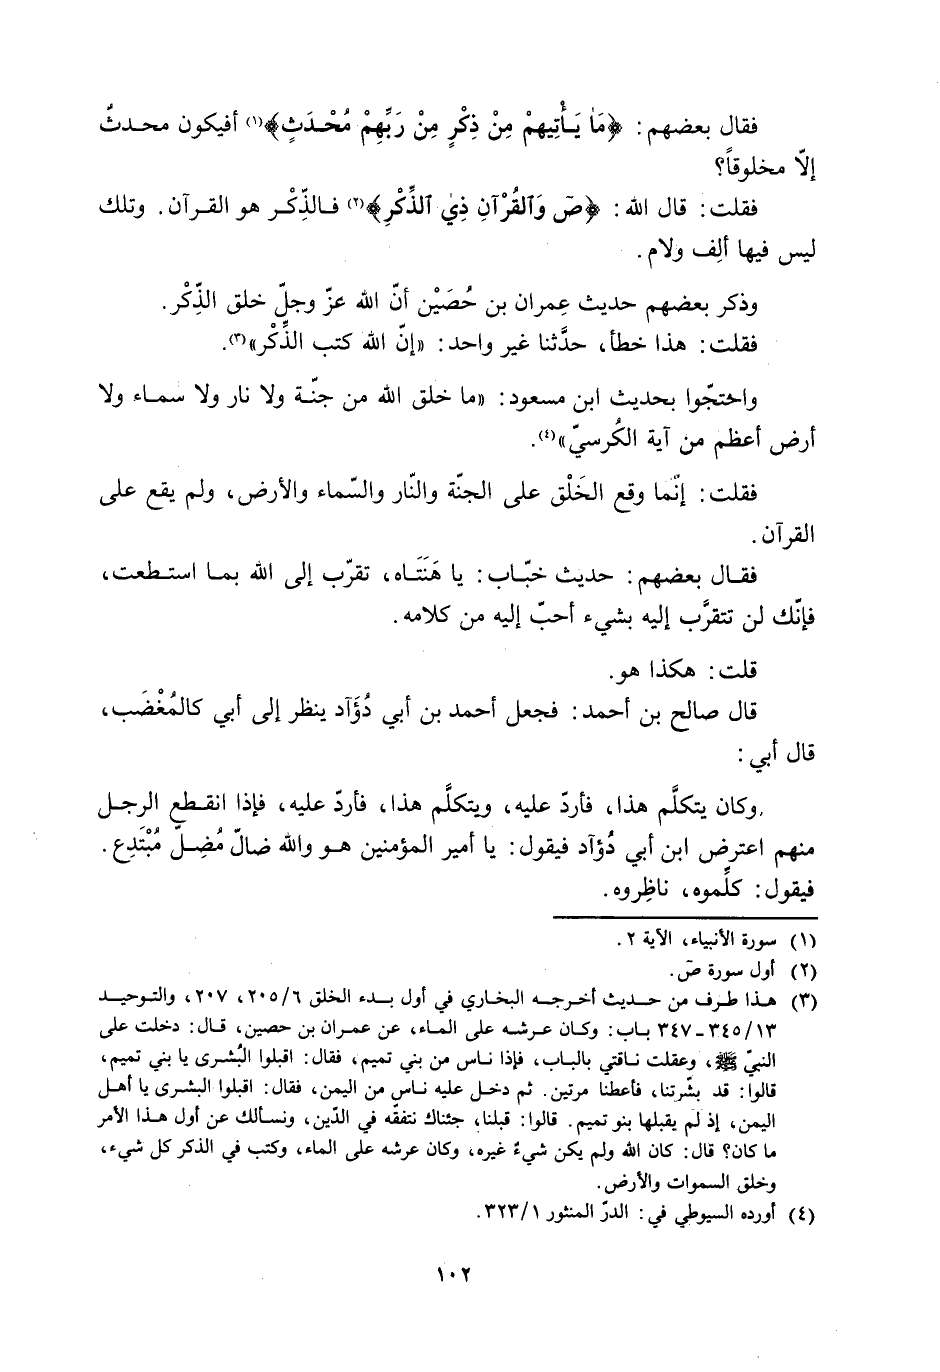 فقال بعضهم: ﴿مَا يَأْتِيهِمْ مِنْ ذِكْرٍ مِنْ رَبِّهِمْ مُحْدَثٍ﴾(١) أفيكون محدثٌ
إلّا مخلوقاً؟
فقلت: قال الله: ﴿صَ وَٱلقُرْآنِ ذِي ٱلذِّكْرِ﴾(٢) فالذِّكْر هو القرآن. وتلك
ليس فيها ألِف ولام.
وذكر بعضهم حديث عِمران بن حُصَيْن أنّ الله عزّ وجلّ خلق الذِّكْر.
فقلت: هذا خطأ، حدَّثنا غير واحد: «إنّ الله كتب الذِّكْر»(٣).
واحتجّوا بحديث ابن مسعود: «ما خلق الله من جنّة ولا نار ولا سماء ولا
أرض أعظم من آية الكُرسيّ»(٤).
فقلت: إنّما وقع الخَلْق على الجنّة والنّار والسّماء والأرض، ولم يقع على
القرآن.
فقال بعضهم: حديث خبّاب: يا هَنَتَاه، تقرّب إلى الله بما استطعت،
فإنّك لن تتقرَّب إليه بشيء أحبّ إليه من كلامه.
قلت: هكذا هو.
قال صالح بن أحمد: فجعل أحمد بن أبي دُؤَآد ينظر إلى أبي كالمُغْضَب،
قال أبي:
وكان يتكلَّم هذا، فأردّ عليه، ويتكلَّم هذا، فأردّ عليه، فإذا انقطع الرجل
منهم اعترض ابن أبي دُؤآد فيقول: يا أمير المؤمنين هو والله ضالّ مُضِلّ مُبْتَدِع.
فيقول: كلِّموه، ناظِروه.
(١) سورة الأنبياء، الآية ٢.
(٢) أول سورة صَ.
(٣) هذا طرف من حديث أخرجه البخاري في أول بدء الخلق ٢٠٥/٦، ٢٠٧، والتوحيد
٣٤٥/١٣ـ٣٤٧ باب: وكان عرشه على الماء، عن عمران بن حصين، قال: دخلت على
النبيّ ﷺ، وعقلت ناقتي بالباب، فإذا ناس من بني تميم، فقال: اقبلوا البُشرى يا بني تميم،
قالوا: قد بشّرتنا، فأعطنا مرتين. ثم دخل عليه ناس من اليمن، فقال: اقبلوا البشرى يا أهل
اليمن، إذ لم يقبلها بنو تميم. قالوا: قبلنا، جئناك نتفقّه في الدّين، ونسألك عن أول هذا الأمر
ما كان؟ قال: كان الله ولم يكن شيءٌ غيره، وكان عرشه على الماء، وكتب في الذكر كل شيء،
وخلق السموات والأرض.
(٤) أورده السيوطي في: الدرّ المنثور ٣٢٣/١.
١٠٢